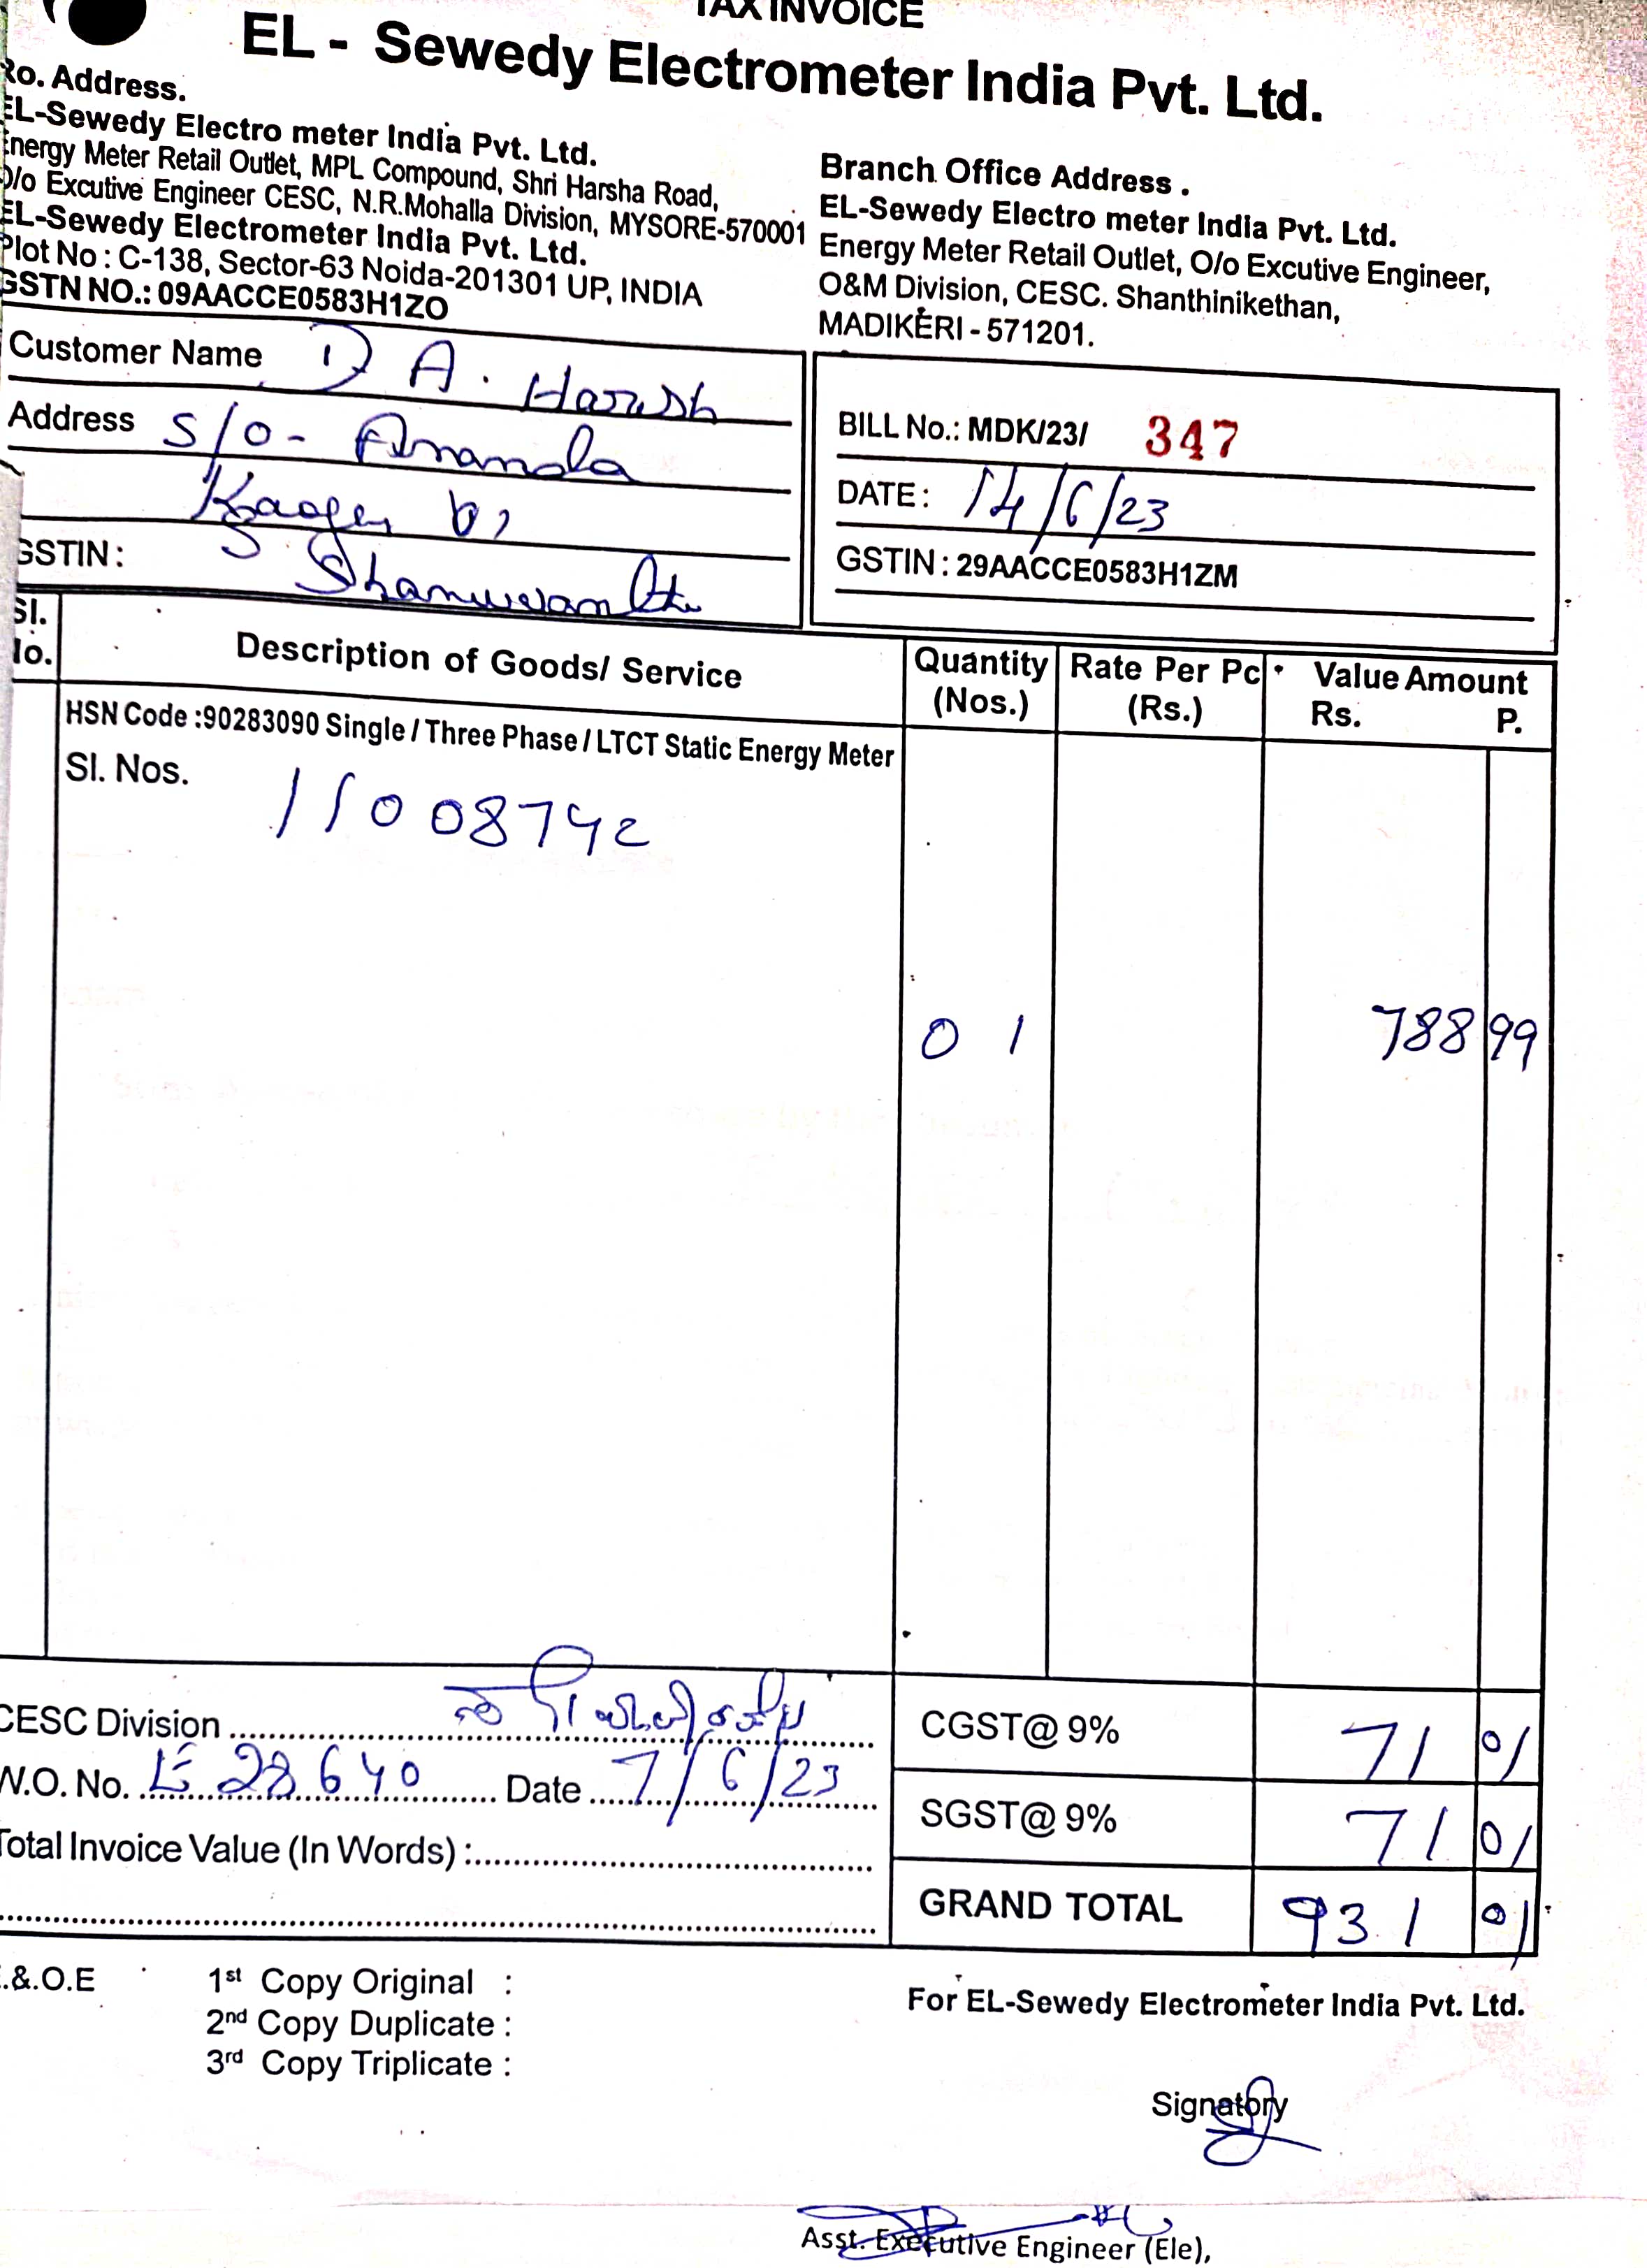 TAX INVOICE
EL - Sewedy Electrometer India Pvt. Ltd.
Ro. Address.
EL-Sewedy Electro meter India Pvt. Ltd.
Energy Meter Retail Outlet, MPL Compound, Shri Harsha Road,
O/o Excutive Engineer CESC, N.R.Mohalla Division, MYSORE-570001
EL-Sewedy Electrometer India Pvt. Ltd.
Plot No : C-138, Sector-63 Noida-201301 UP, INDIA
GSTN NO.: 09AACCE0583H1ZO
Branch Office Address .
EL-Sewedy Electro meter India Pvt. Ltd.
Energy Meter Retail Outlet, O/o Excutive Engineer,
O&M Division, CESC. Shanthinikethan,
MADIKERI - 571201.
Customer Name D A. Harish
Address S/o - Ananda
GSTIN :
BILL No.: MDK/23/ 347
DATE : 14/6/23
GSTIN : 29AACCE0583H1ZM
Sl. No. Description of Goods/ Service Quantity (Nos.) Rate Per Pc (Rs.) Value Amount Rs. P.
HSN Code :90283090 Single / Three Phase / LTCT Static Energy Meter
Sl. Nos. 11008742
01 788 99
CESC Division
CGST@ 9% 71 01
W.O. No. 28640 Date 7/6/23
SGST@ 9% 71 01
Total Invoice Value (In Words) :
GRAND TOTAL 931 01
E.&.O.E 1st Copy Original :
2nd Copy Duplicate :
3rd Copy Triplicate :
For EL-Sewedy Electrometer India Pvt. Ltd.
Signatory
Asst. Executive Engineer (Ele),